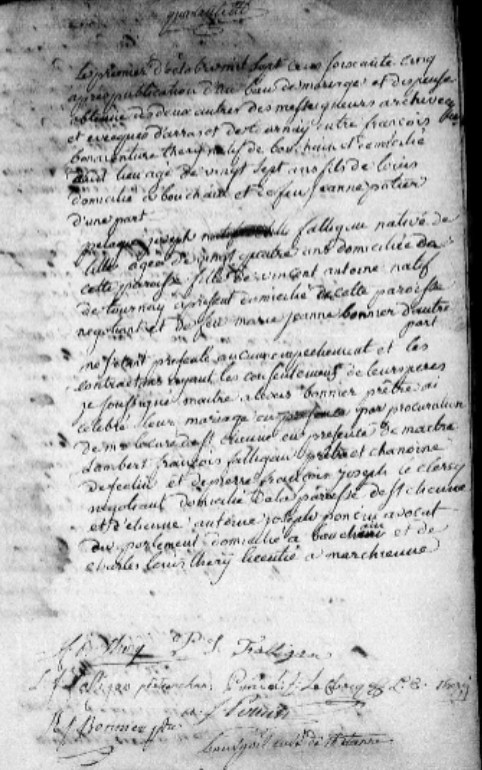 le premier d'octobre mil sept cens soixante cinq
après publication d'un ban de mariage et dispense
obtenue des deux autres de messeigneurs archeveq
et eveques d'arras et de tournay entre françois
bonaventure thery natif de bouchain et domicilié
audit lieu agé de vingt sept ans fils de louis
domicilié a bouchain et de feu jeanne patier
d'une part
pelagie joseph falligan native de
lille agée de vingt quatre ans domiciliée de
cette paroisse fille de vincent antoine natif
de tournay a present domicilié de cette paroisse
negotiant et de feu marie jeanne bonnier d'autre
part
ne s'etant presenté aucun empechement et les
contractans ayant les consentemens de leurs peres
je soussigné maitre bonnier prêtre ai
celebré leur mariage par procuration
de mr le curé de st etienne en presence de maitre
Lambert françois falligan prêtre et chanoine
de seclin et de pierre françois joseph le clercq
negotiant domicilié de la paroisse de st etienne
et d'etienne antoine joseph avocat
du parlement domicilié a bouchain et de
charles louis thery licentié a marchienne
f b thery P J Falligan
L f falligan Le Clercq L. C. thery
Bonnier
curé de st etienne